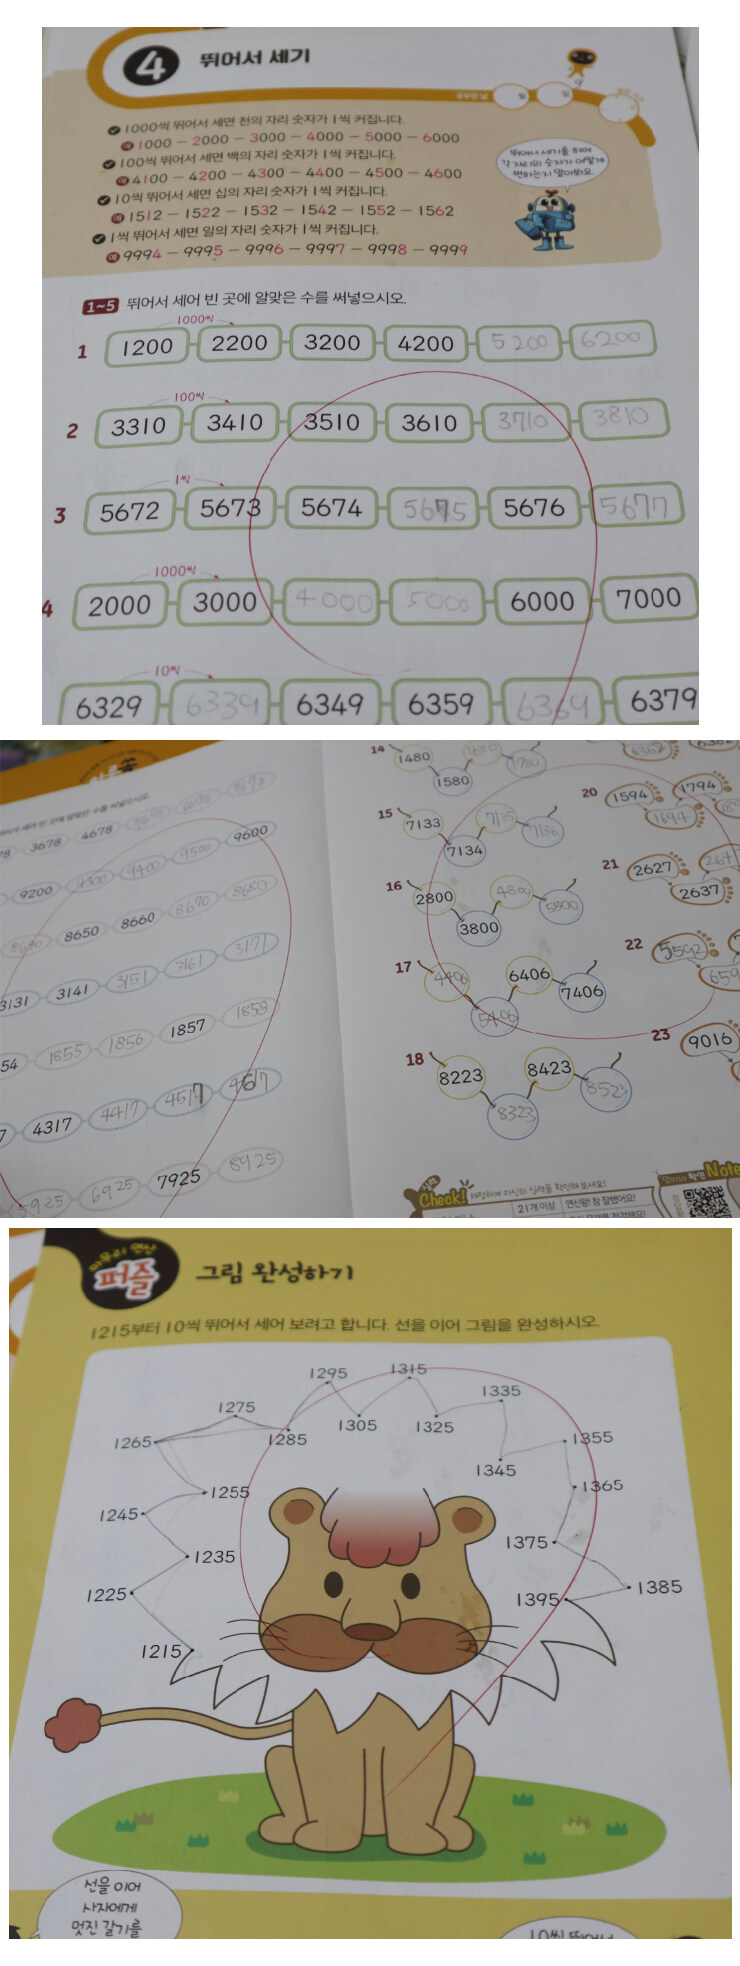 4 뛰어서 세기
공부한 날 월 일
1000씩 뛰어서 세면 천의 자리 숫자가 1씩 커집니다.
예 1000 - 2000 - 3000 - 4000 - 5000 - 6000
100씩 뛰어서 세면 백의 자리 숫자가 1씩 커집니다.
예 4100 - 4200 - 4300 - 4400 - 4500 - 4600
10씩 뛰어서 세면 십의 자리 숫자가 1씩 커집니다.
예 1512 - 1522 - 1532 - 1542 - 1552 - 1562
1씩 뛰어서 세면 일의 자리 숫자가 1씩 커집니다.
예 9994 - 9995 - 9996 - 9997 - 9998 - 9999
뛰어서 세기를 하여
각 자리의 숫자가 어떻게
변하는지 알아봐요.
1~5 뛰어서 세어 빈 곳에 알맞은 수를 써넣으시오.
1000씩
1 1200 2200 3200 4200 5200 6200
100씩
2 3310 3410 3510 3610 3710 3810
1씩
3 5672 5673 5674 5675 5676 5677
1000씩
4 2000 3000 4000 5000 6000 7000
10씩
6329 6339 6349 6359 6369 6379
뛰어서 세어 빈 곳에 알맞은 수를 써넣으시오.
78 3678 4678 5678 6678 7678
9200 9300 9400 9500 9600
8640 8650 8660 8670 8680
3131 3141 3151 3161 3171
54 1855 1856 1857 1858
7 4317 4417 4517 4617
5925 6925 7925 8925
14 1480 1580 1680 1780
15 7133 7134 7135 7136
16 2800 3800 4800 5800
17 4406 5406 6406 7406
18 8223 8323 8423 8523
6362 6382
20 1594 1694 1794
21 2627 2637
22 5592 659
23 9016
실력 Check! 채점하여 자신의 실력을 확인해 보세요!
21개 이상 연산왕! 참 잘했어요!
엄마의 확인 Note
마무리 연산
퍼즐 그림 완성하기
1215부터 10씩 뛰어서 세어 보려고 합니다. 선을 이어 그림을 완성하시오.
1295 1315
1335
1275
1305 1325
1265 1285 1355
1345
1255 1365
1245
1235 1375
1225 1385
1395
1215
선을 이어
사자에게
멋진 갈기를
10씩 뛰어서